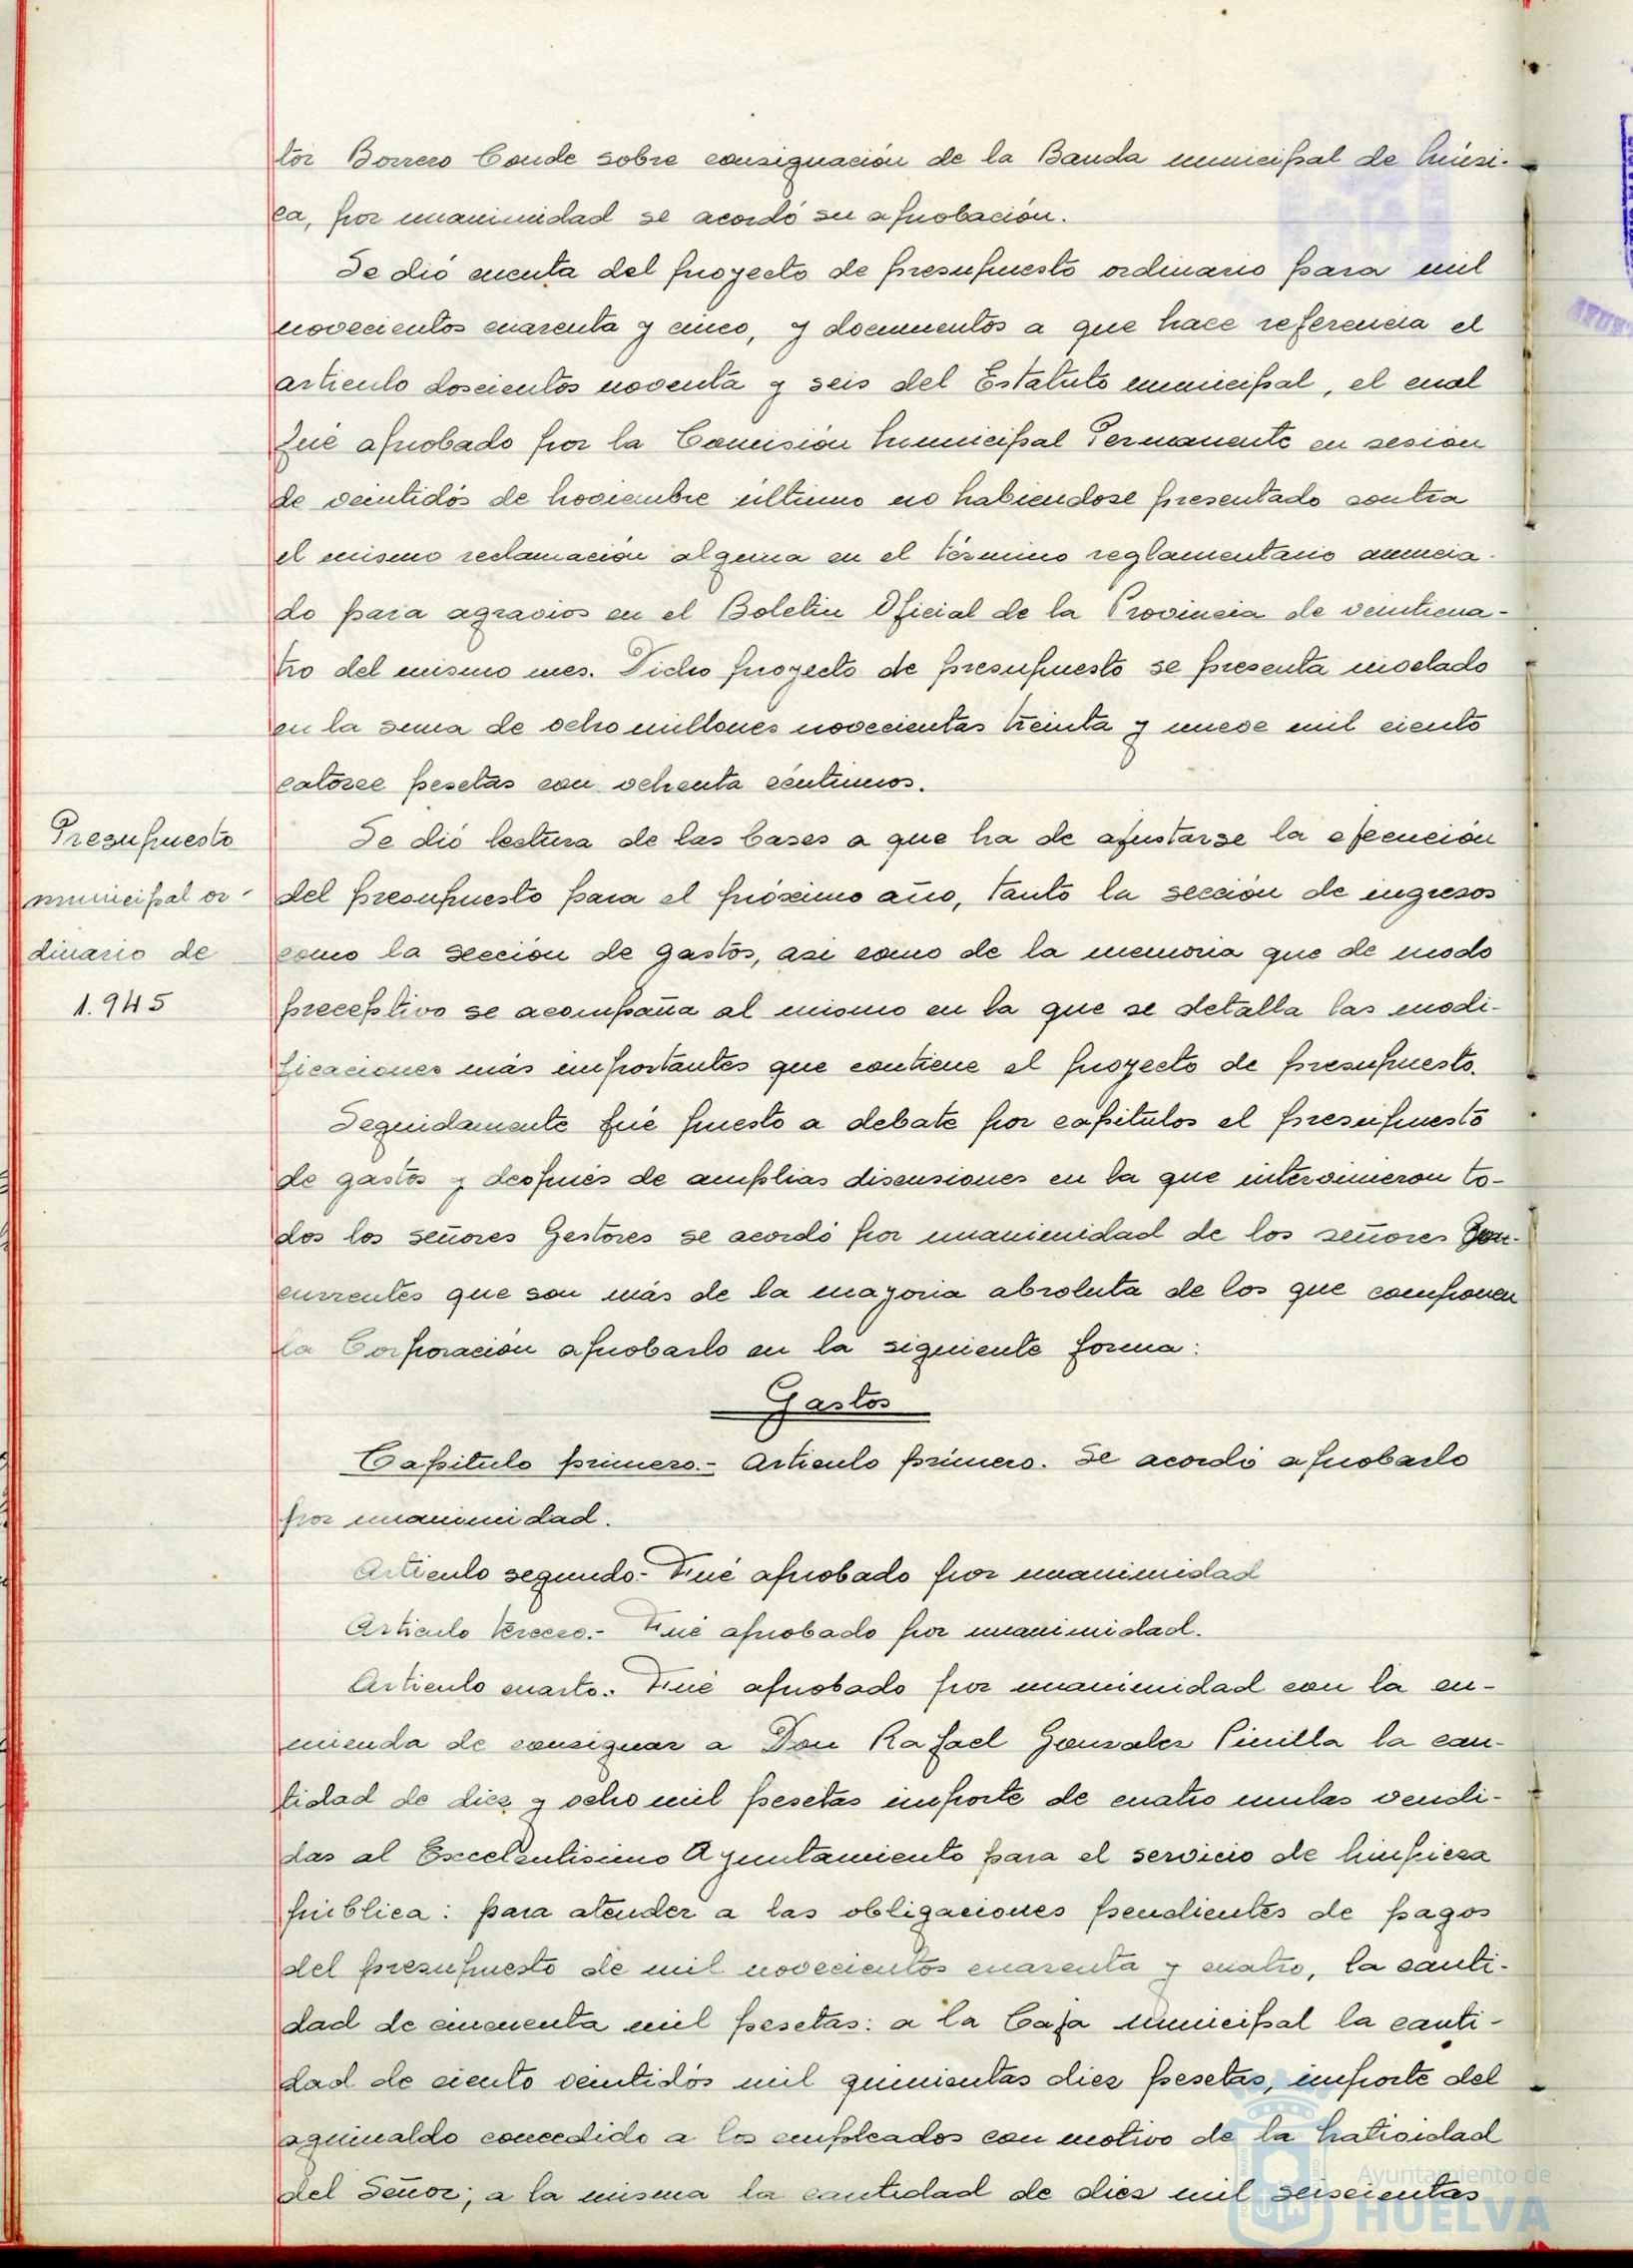 tor Borrero Conde sobre consignación de la Banda municipal de Músi-
ca, por unanimidad se acordó su aprobación.
Se dió cuenta del proyecto de presupuesto ordinario para mil
novecientos cuarenta y cinco, y documentos a que hace referencia el
artículo doscientos noventa y seis del Estatuto municipal, el cual
fué aprobado por la Comisión Municipal Permanente en sesión
de veintidós de Noviembre último no habiendose presentado contra
el mismo reclamación alguna en el término reglamentario anuncia-
do para agravios en el Boletin Oficial de la Provincia de veinticua-
tro del mismo mes. Dicho proyecto de presupuesto se presenta nivelado
en la suma de ocho millones novecientas treinta y nueve mil ciento
catorce pesetas con ochenta céntimos.
Presupuesto
municipal or-
dinario de
1.945
Se dió lectura de las bases a que ha de ajustarse la ejecución
del presupuesto para el próximo año, tanto la sección de ingresos
como la sección de gastos, asi como de la memoria que de modo
preceptivo se acompaña al mismo en la que se detalla las modi-
ficaciones más importantes que contiene el proyecto de presupuesto.
Seguidamente fué puesto a debate por capitulos el presupuesto
de gastos y después de amplias discusiones en la que intervinieron to-
dos los señores Gestores se acordó por unanimidad de los señores Con-
currentes que son más de la mayoria absoluta de los que componen
la Corporación aprobarlo en la siguiente forma:
Gastos
Capitulo primero.- Articulo primero. Se acordó aprobarlo
por unanimidad.
Articulo segundo.- Fué aprobado por unanimidad
Articulo tercero.- Fué aprobado por unanimidad.
Articulo cuarto.- Fué aprobado por unanimidad con la en-
mienda de consignar a Don Rafael Gonzalez Pinilla la can-
tidad de diez y ocho mil pesetas importe de cuatro mulas vendi-
das al Excelentisimo Ayuntamiento para el servicio de Limpieza
pública: para atender a las obligaciones pendientes de pagos
del presupuesto de mil novecientos cuarenta y cuatro, la canti-
dad de cincuenta mil pesetas: a la Caja municipal la canti-
dad de ciento veintidós mil quinientas diez pesetas, importe del
aguinaldo concedido a los empleados con motivo de la Natividad
del Señor; a la misma la cantidad de diez mil seiscientas
Ayuntamiento de
HUELVA